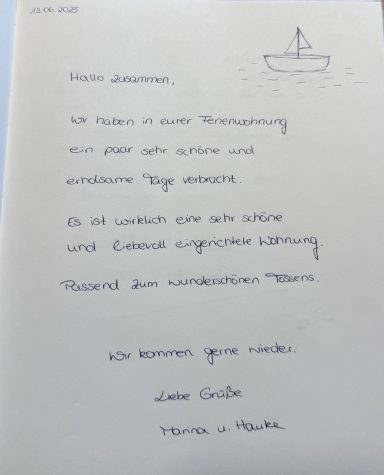 13.06.2025
Hallo zusammen,
wir haben in eurer Ferienwohnung
ein paar sehr schöne und
erholsame Tage verbracht.
Es ist wirklich eine sehr schöne
und liebevoll eingerichtete Wohnung.
Passend zum wunderschönen Tossens.
Wir kommen gerne wieder.
Liebe Grüße
Marina u. Hauke